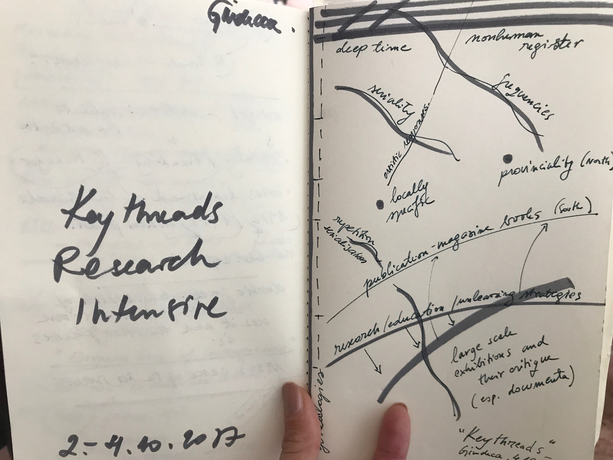 Giudecca.
Key threads
Research
Intensive
2.-4.10.2017
deep time
nonhuman
register
seriality
frequencies
artistic responses
provinciality (north)
locally
specific
repetition
serialisation
publication-magazine books (South)
research/education/unlearning strategies
large scale
exhibitions and
their critique
(esp. documenta)
"Key threads"